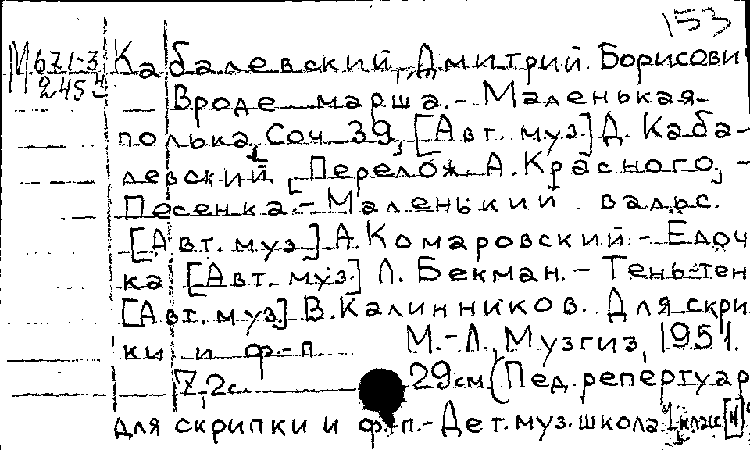 153
М 671-3 Кабалевский, Дмитрий Борисови
245 Вроде марша.- Маленькая
полька, Соч. 39, [Авт. муз.] Д. Каба-
левский, Перелож. А. Красного, -
Песенка.- Маленький вальс.
[Авт. муз.] А. Комаровский.- Елоч
ка [Авт. муз.] Л. Бекман.- Тень-тен
[Авт. муз.] В. Калинников. Для скри
ки и ф.-п. М.-Л., Музгиз, 1951.
7,2с. 29 см. (Пед. репертуар
для скрипки и ф-п.- Дет. муз. школа. 1 класс